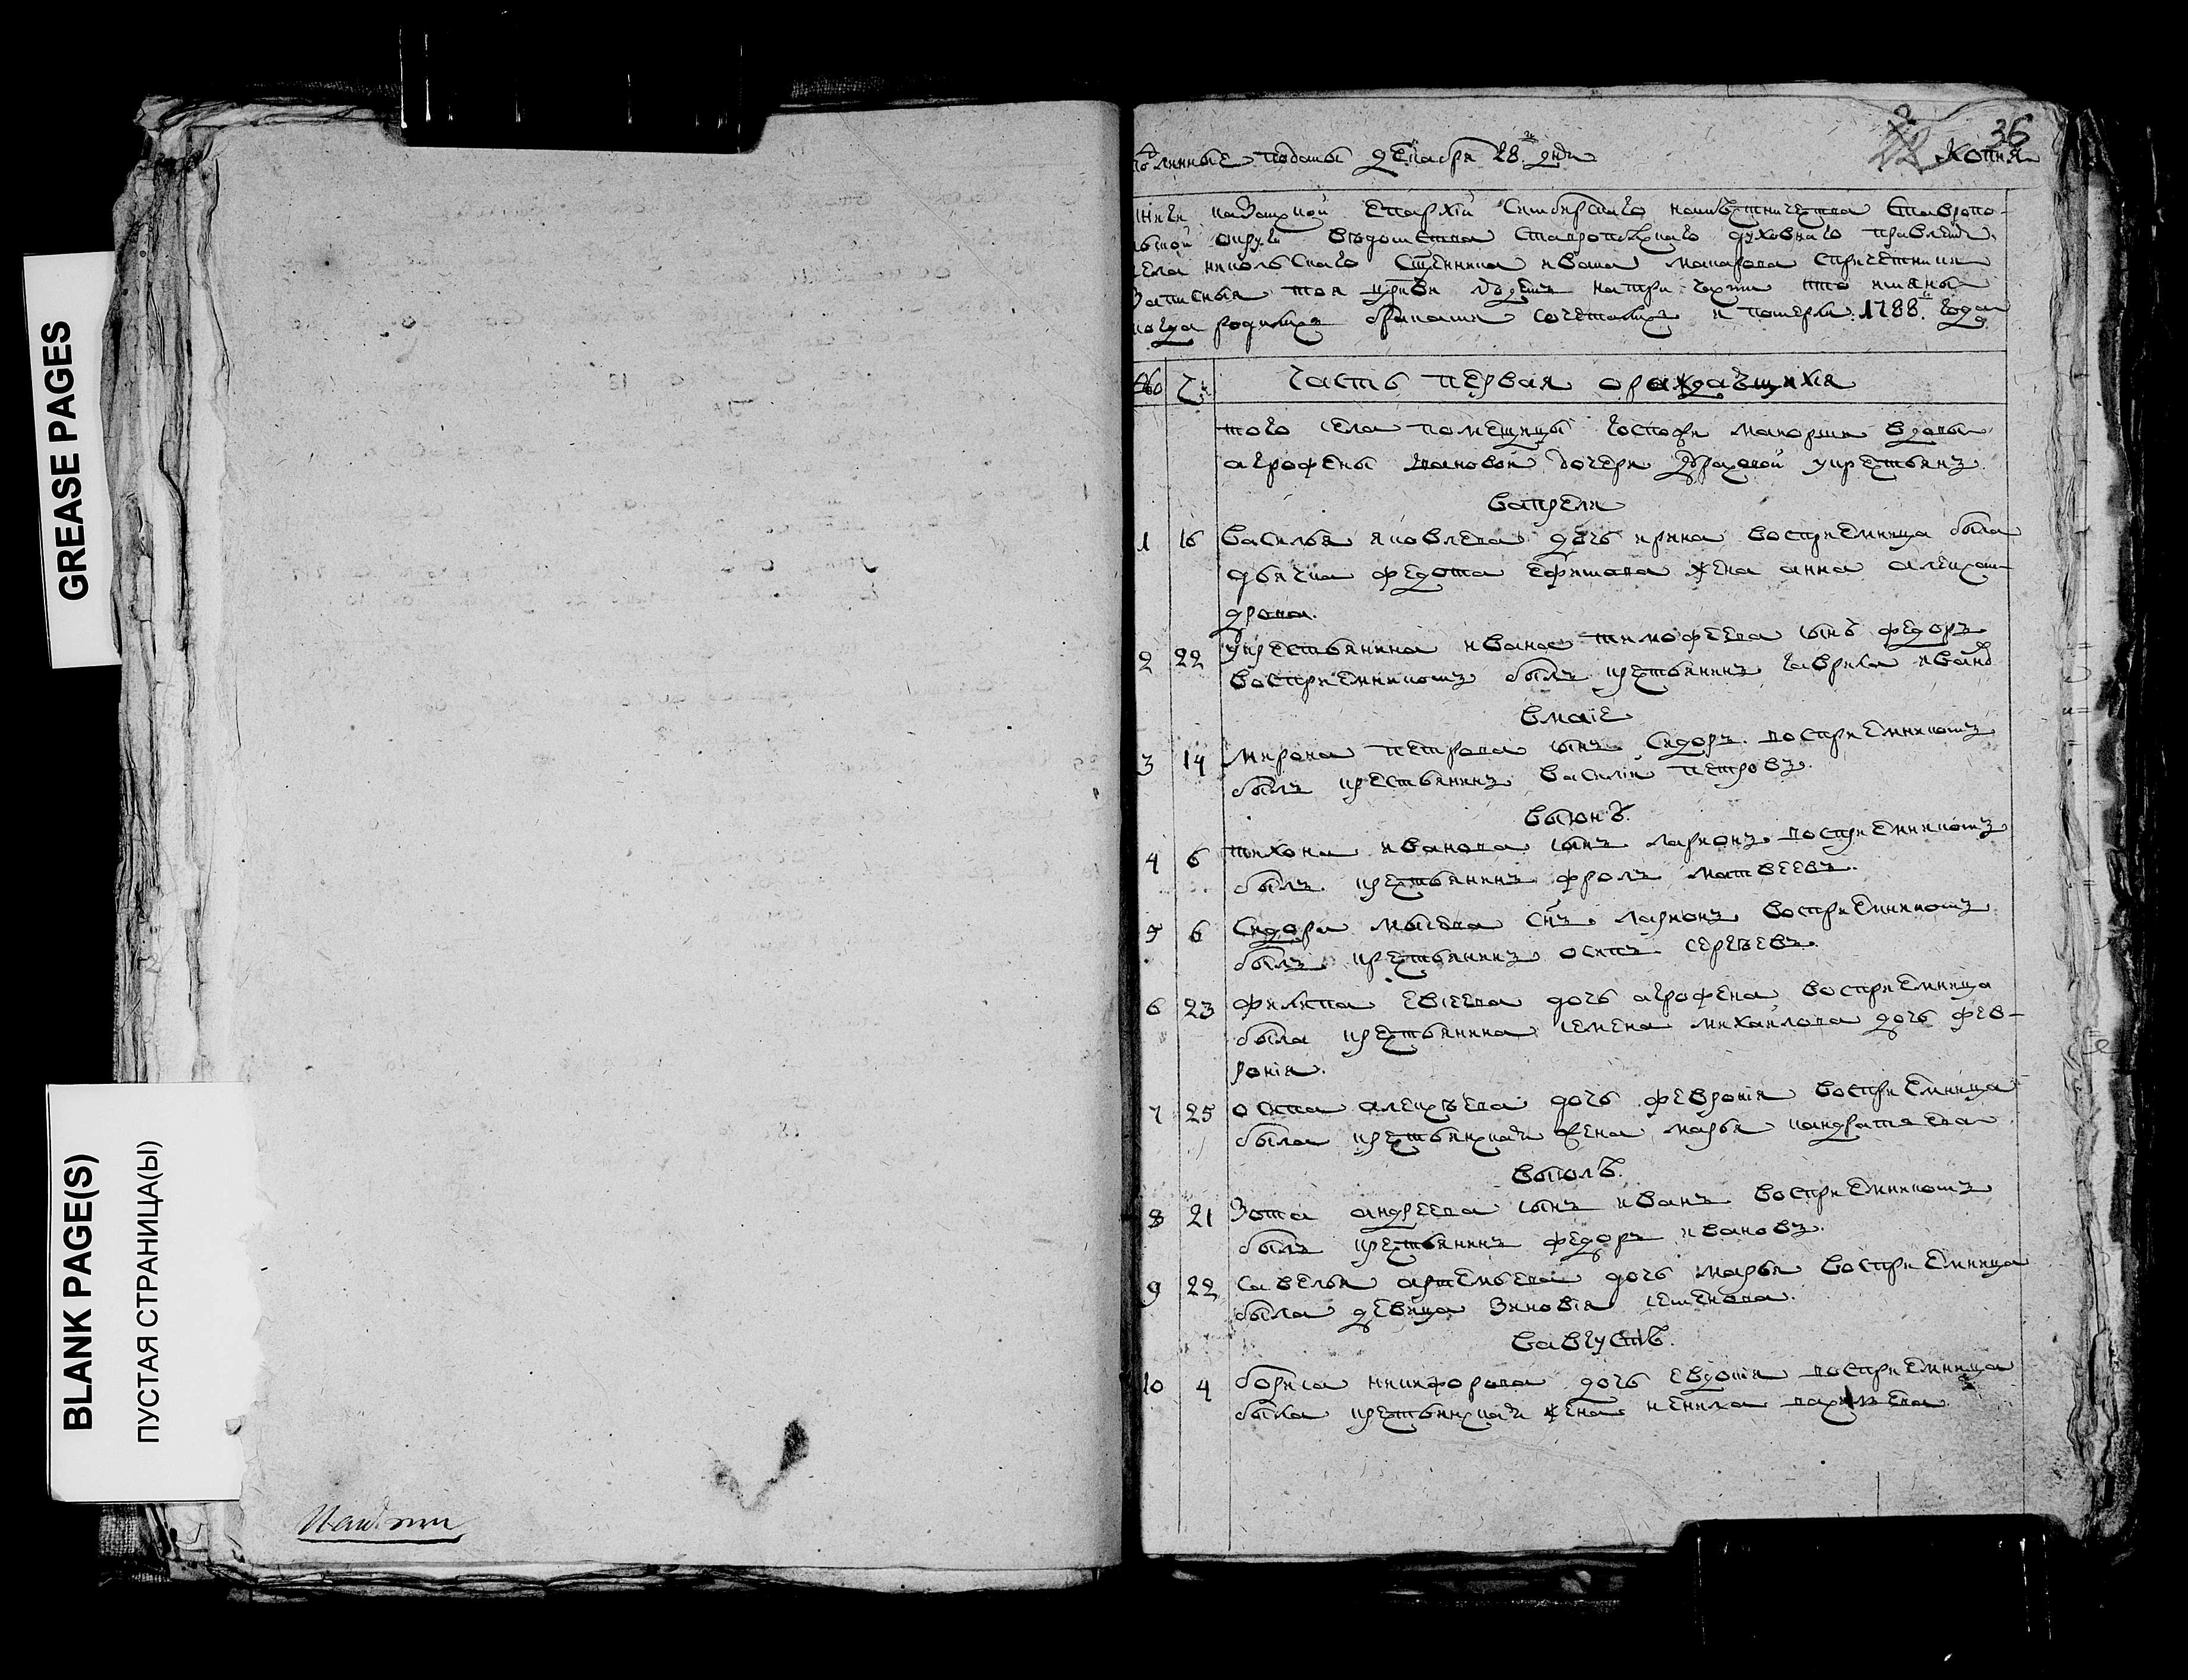 GREASE PAGES
BLANK PAGE(S)
ПУСТАЯ СТРАНИЦА(Ы)
36
поданы декабря 28 дня
Копия
казанской епархии Симбирскаго наместничества Ставропо-
округи ведомства Ставропольскаго духовнаго правлен
села николскаго Сщенника ивана макарова спричетники
Записныя тоя цркви
когда родилис браком сочетались и померли 1788 года
Часть первая ораждающихся
того села помещицы госпожи маиорши вдовы
агрофены ивановой дочери укрестьянъ
вапреле
1 16 василья яковлева дочь ирина восприемница была
дьячка федота ефимова жена анна алексан-
дрова.
2 22 укрестьянина ивана тимофеева сынъ федоръ
восприемникомъ былъ крестьянинъ гаврила иванов
вмаіе
3 14 мирона петрова сынъ Сидоръ восприемникомъ
былъ крестьянинъ василий петровъ.
выюнѣ.
4 6 тихона иванова сынъ ларионъ восприемникомъ
былъ крестьянинъ фролъ матвеевъ.
5 6 Сидора снъ ларионъ восприемникомъ
былъ крестьянинъ осипъ сергѣевъ.
6 23 филипа евсеева дочь агрофена восприемница
была крестьянина семена михайлова дочь фев-
ронія.
7 25 осипа алексѣева дочь февронія восприемница
была крестьянская жена марья кандратьева
выюлѣ.
8 21 Зота андреева сынъ иванъ восприемникомъ
былъ крестьянинъ федоръ ивановъ.
9 22 савелья артемьева дочь марья восприемница
была девица Зиновія семенова.
вавгустѣ.
10 4 бориса никифорова дочь евдокия восприемница
была крестьянская жена